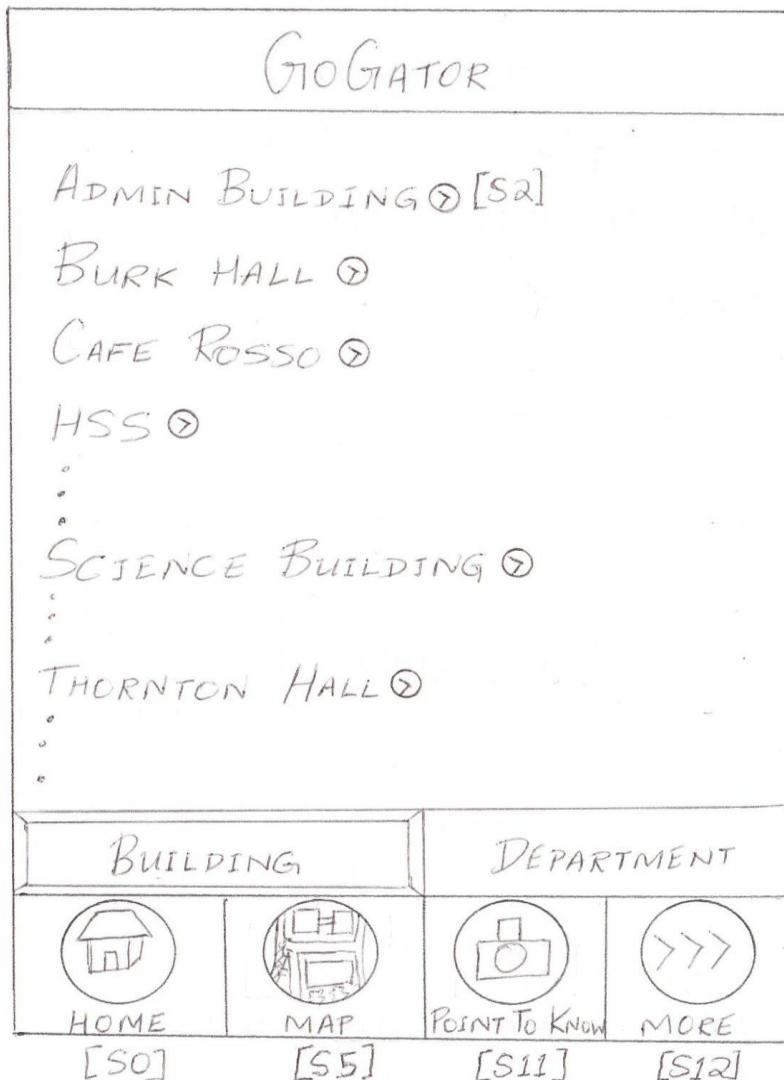 GOGATOR
ADMIN BUILDING [S2]
BURK HALL
CAFE ROSSO
HSS
SCIENCE BUILDING
THORNTON HALL
BUILDING DEPARTMENT
HOME MAP POINT TO KNOW MORE
[S0] [S5] [S11] [S12]